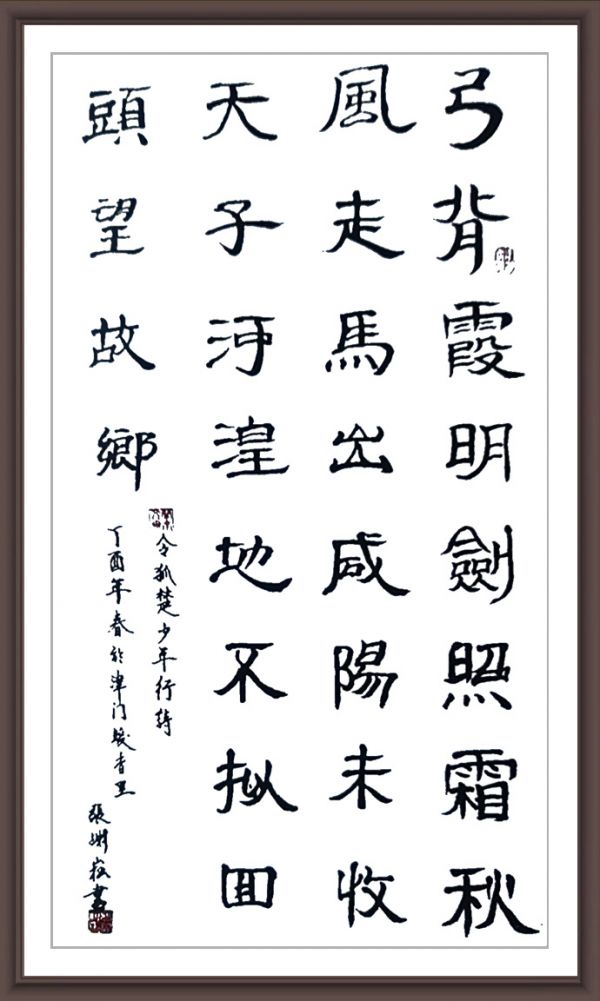 弓背霞明劍照霜秋
風走馬出咸陽未收
天子河湟地不拟囬
頭望故鄉
令狐楚少年行詩
丁酉年春於津门
張 書